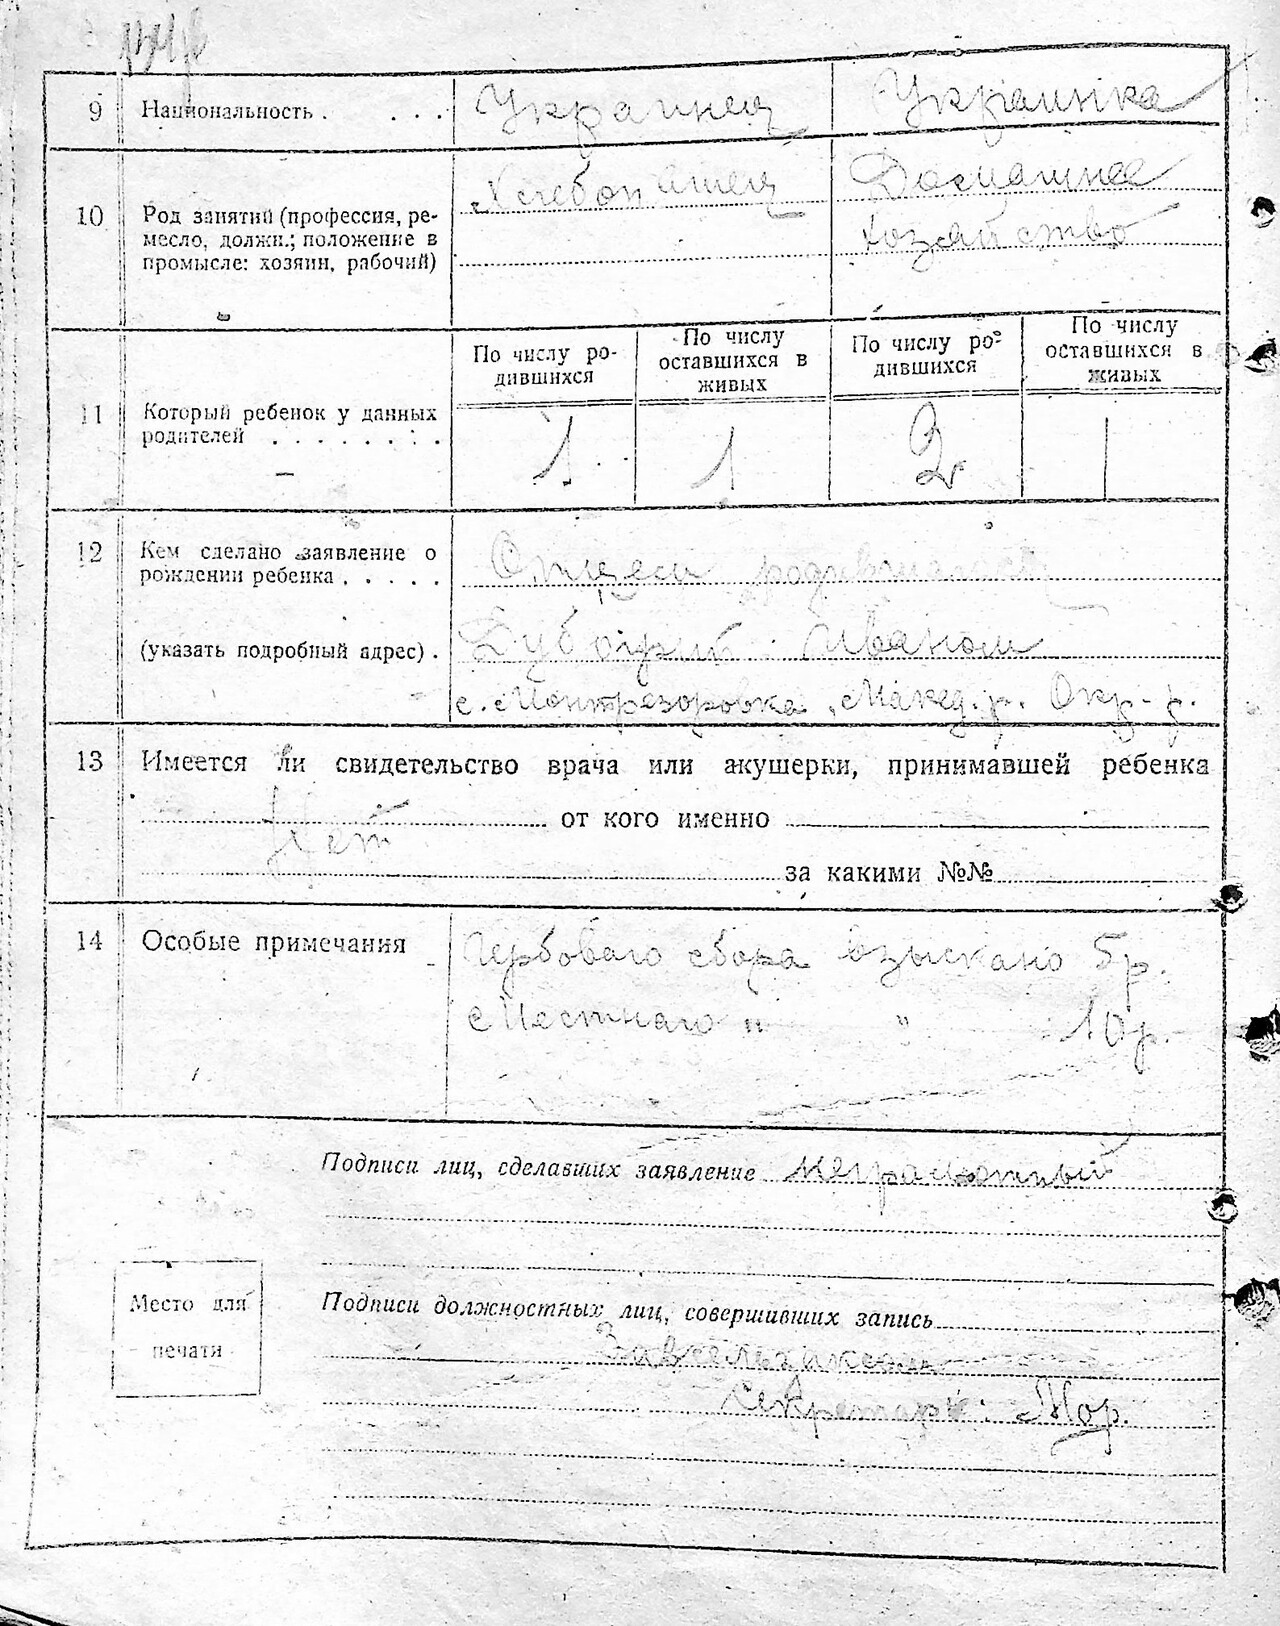 9 Национальность . . . . Украинец Украинка
10 Род занятий (профессия, ре-
месло, должн.; положение в
промысле: хозяин, рабочий)
Хлебопашец Домашнее
хозайство
11 Который ребенок у данных
родителей . . . . . . . .
По числу ро-
дившихся
По числу
оставшихся в
живых
По числу ро-
дившихся
По числу
оставшихся в
живых
1 1 2 1
12 Кем сделано заявление о
рождении ребенка . . . . .
(указать подробный адрес) .
Отцем
Иваном
с. Монтрезоровка Макед. р. Окр-р.
13 Имеется ли свидетельство врача или акушерки, принимавшей ребенка
Нет от кого именно
за какими №№
14 Особые примечания
Гербоваго сбора взыскано 5 р.
Местнаго " " 10 р.
Подписи лиц, сделавших заявление неграмотный
Место для
печати
Подписи должностных лиц, совершивших запись
Секретарь: